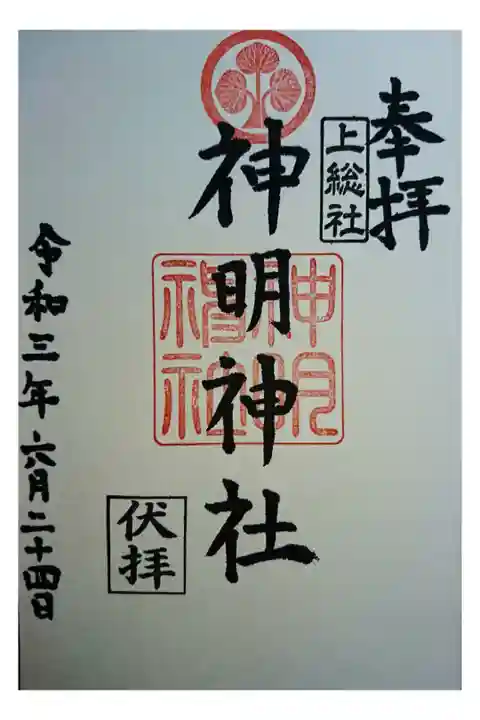 奉拝
上総社
神明神社
伏拝
令和三年六月二十四日